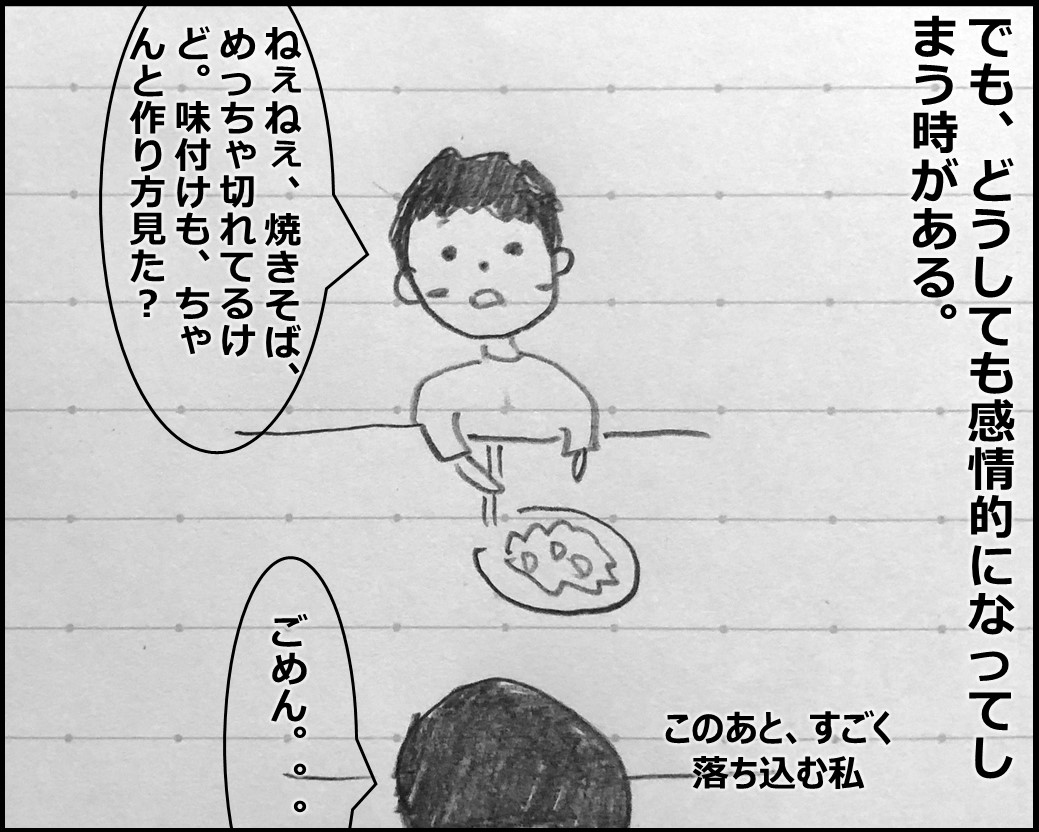 でも、どうしても感情的になってし
まう時がある。
ねぇねぇ、焼きそば、
めっちゃ切れてるけ
ど。味付けも、ちゃ
んと作り方見た？
ごめん。。。
このあと、すごく
落ち込む私